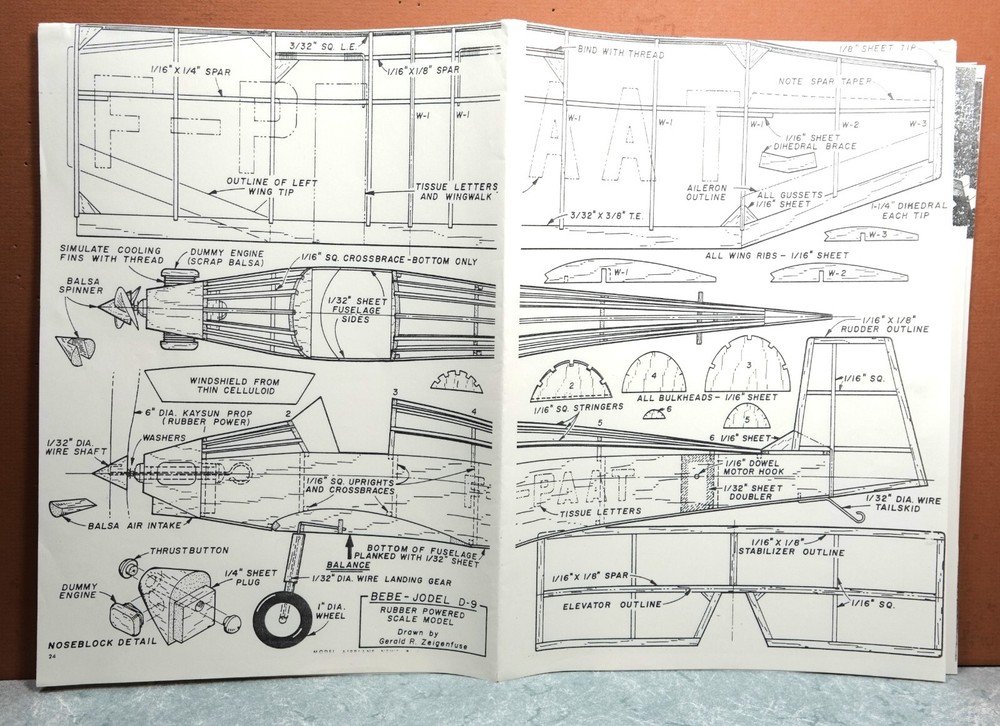 3/32" SQ. L.E.
1/16" X 1/4" SPAR
1/16" X 1/8" SPAR
F-P
W-1
W-1
OUTLINE OF LEFT
WING TIP
TISSUE LETTERS
AND WINGWALK
BIND WITH THREAD
1/8" SHEET TIP
NOTE SPAR TAPER
AAT
W-1
W-1
W-1
W-2
W-3
1/16" SHEET
DIHEDRAL BRACE
AILERON
OUTLINE
ALL GUSSETS
1/16" SHEET
3/32" X 3/8" T.E.
1-1/4" DIHEDRAL
EACH TIP
W-3
ALL WING RIBS - 1/16" SHEET
W-1
W-2
SIMULATE COOLING
FINS WITH THREAD
DUMMY ENGINE
(SCRAP BALSA)
1/16" SQ. CROSSBRACE - BOTTOM ONLY
BALSA
SPINNER
1/32" SHEET
FUSELAGE
SIDES
1/16" X 1/8"
RUDDER OUTLINE
WINDSHIELD FROM
THIN CELLULOID
2
4
3
ALL BULKHEADS - 1/16" SHEET
1/16" SQ. STRINGERS
6
5
1/16" SQ.
6" DIA. KAYSUN PROP
(RUBBER POWER)
1
2
3
4
5
6
1/16" SHEET
1/32" DIA.
WIRE SHAFT
WASHERS
1/16" SQ. UPRIGHTS
AND CROSSBRACES
PAAT
TISSUE LETTERS
1/16" DOWEL
MOTOR HOOK
1/32" SHEET
DOUBLER
1/32" DIA. WIRE
TAILSKID
BALSA AIR INTAKE
BOTTOM OF FUSELAGE
PLANKED WITH 1/32" SHEET
BALANCE
THRUSTBUTTON
1/4" SHEET
PLUG
DUMMY
ENGINE
NOSEBLOCK DETAIL
1/32" DIA. WIRE LANDING GEAR
1" DIA.
WHEEL
BEBE-JODEL D-9
RUBBER POWERED
SCALE MODEL
Drawn by
Gerald R. Zeigenfuse
1/16" X 1/8"
STABILIZER OUTLINE
1/16" X 1/8" SPAR
ELEVATOR OUTLINE
1/16" SQ.
24